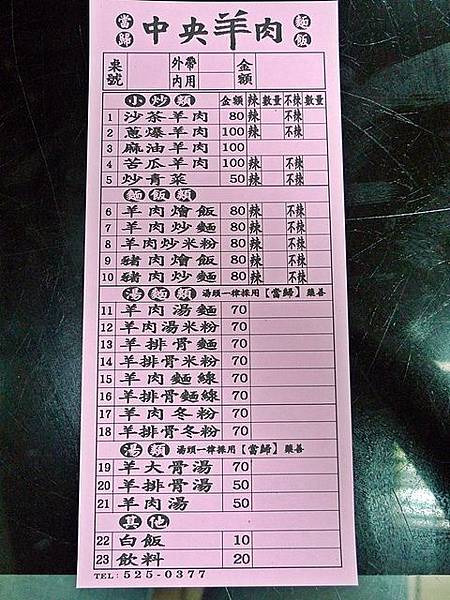 當歸 中央羊肉 麵飯
桌號 外帶 內用 金額
小炒類 金額 辣 數量 不辣 數量
1 沙茶羊肉 80 辣 不辣
2 蔥爆羊肉 100 辣 不辣
3 麻油羊肉 100
4 苦瓜羊肉 100 辣 不辣
5 炒青菜 50 辣 不辣
麵飯類
6 羊肉燴飯 80 辣 不辣
7 羊肉炒麵 80 辣 不辣
8 羊肉炒米粉 80 辣 不辣
9 豬肉燴飯 80 辣 不辣
10 豬肉炒麵 80 辣 不辣
湯麵類 湯頭一律採用【當歸】藥善
11 羊肉湯麵 70
12 羊肉湯米粉 70
13 羊排骨麵 70
14 羊排骨米粉 70
15 羊肉麵線 70
16 羊排骨麵線 70
17 羊肉冬粉 70
18 羊排骨冬粉 70
湯類 湯頭一律採用【當歸】藥善
19 羊大骨湯 70
20 羊排骨湯 50
21 羊肉湯 50
其他
22 白飯 10
23 飲料 20
TEL:525-0377